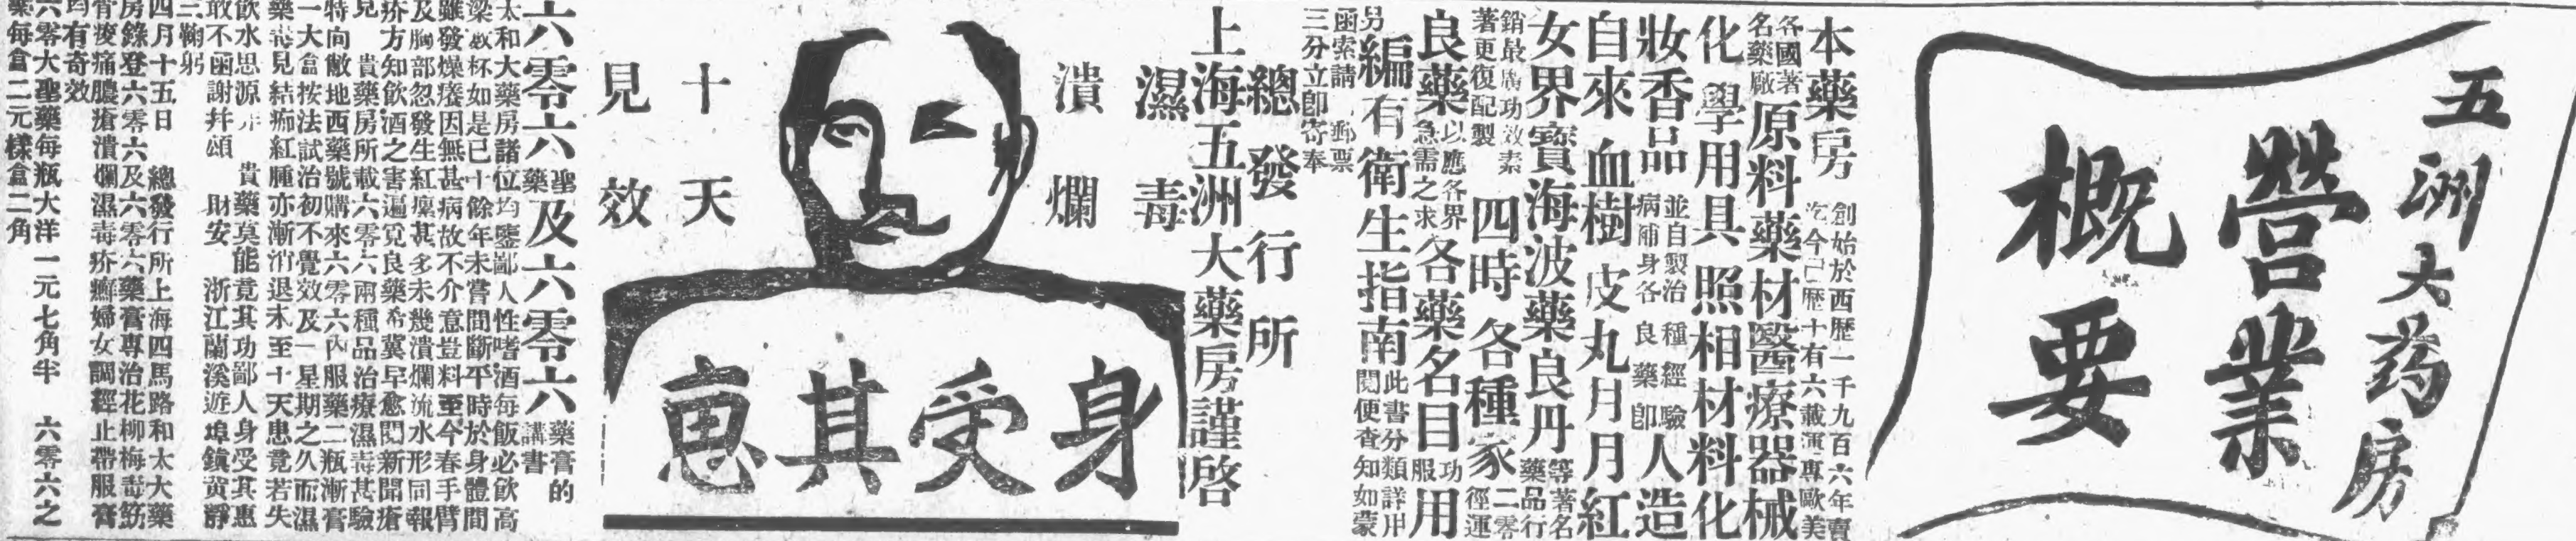 五洲大药房
營業
概要
本藥房
創始於西歷一千九百六年
汔今已歷十有六載
專歐美
各國著
名藥廠
原料藥材醫療器械
化學用具照相材料化
妝香品
並自製治
病補身各
種經驗
良藥卽
人造
自來血樹皮丸月月紅
女界寶海波藥良丹
等著名
藥品行
銷最廣功效素
著更復配製
四時各種家
二零
徑運
良藥
以應各界
急需之求
各藥名目
功
服
用
另編有衛生指南
此書分類詳
閱便查知如蒙
函索請
郵票
三分立卽寄奉
總發行所
上海五洲大藥房謹啓
濕毒
潰爛
十天
見效
身受其惠
六零六
聖
藥
及六零六
藥膏的
講書
太和大藥房諸位均鑒鄙人性嗜酒每飯必飲高
梁數杯如是已十餘年未嘗間斷平時於身體間
雖發燥癢因無甚病故不介意豈料至今春手臂
及胸部忽發生紅瘰甚多未幾潰爛流水形同報
疥方知飲酒之害遍覓良藥希冀早愈閱新聞瘡
見 貴藥房所載六零六兩種品治療濕毒甚驗
特向敝地西藥號購來六零六內服藥二瓶漸膏
一大盒按法試治初不覺效及一星期之久而濕
藥毒見結痂紅腫亦漸消退末至十天患竟若失
飲水思源 貴藥莫能竟其功鄙人身受其惠
敢不函謝幷頌 財安 浙江蘭溪遊埠鎮黃靜
三鞠躬
四月十五日 總發行所上海四馬路和太大藥
房錄登六零六及六零六藥膏專治花柳梅毒筋
骨痠痛膿瘡潰爛濕毒疥癬婦女調經止帶服膏
均有奇效
六零大聖藥每瓶大洋一元七角半 六零六之
藥每盒二元樣盒二角